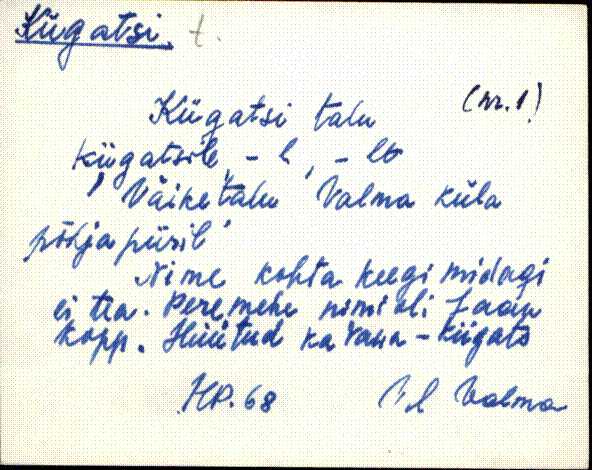 Kügatsi. t.
(nr. 1)
Kügatsi talu
kügatsile, -l, -lt
'Väike talu Valma küla
põhja piiril'
Nime kohta keegi midagi
ei tea. Peremehe nimi oli Jaan
Kopp. Hüütud ka vana-kügats
HP. 68 Vil Valma